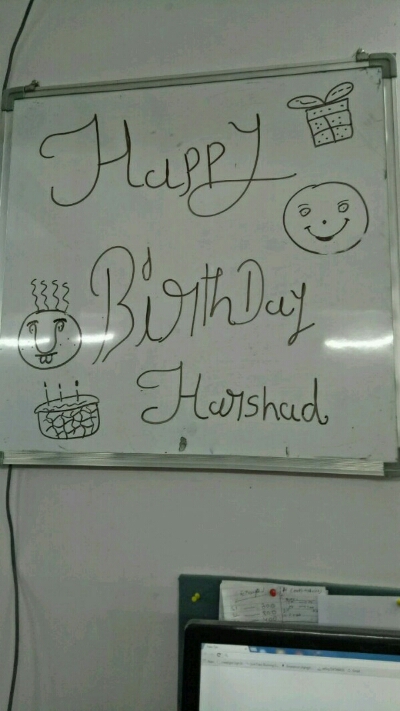 Happy
BirthDay
Harshad